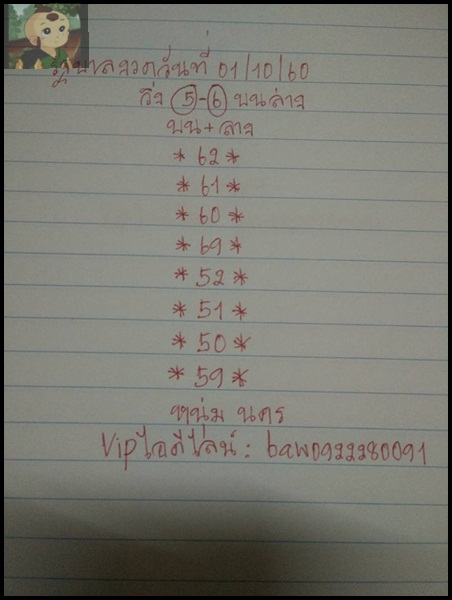 รัฐบาลงวดวันที่ 01/10/60
วิ่ง 5-6 บนล่าง
บน+ล่าง
* 62 *
* 61 *
* 60 *
* 69 *
* 52 *
* 51 *
* 50 *
* 59 *
หนุ่ม นคร
Vip ไอดีไลน์ : baw0922280091